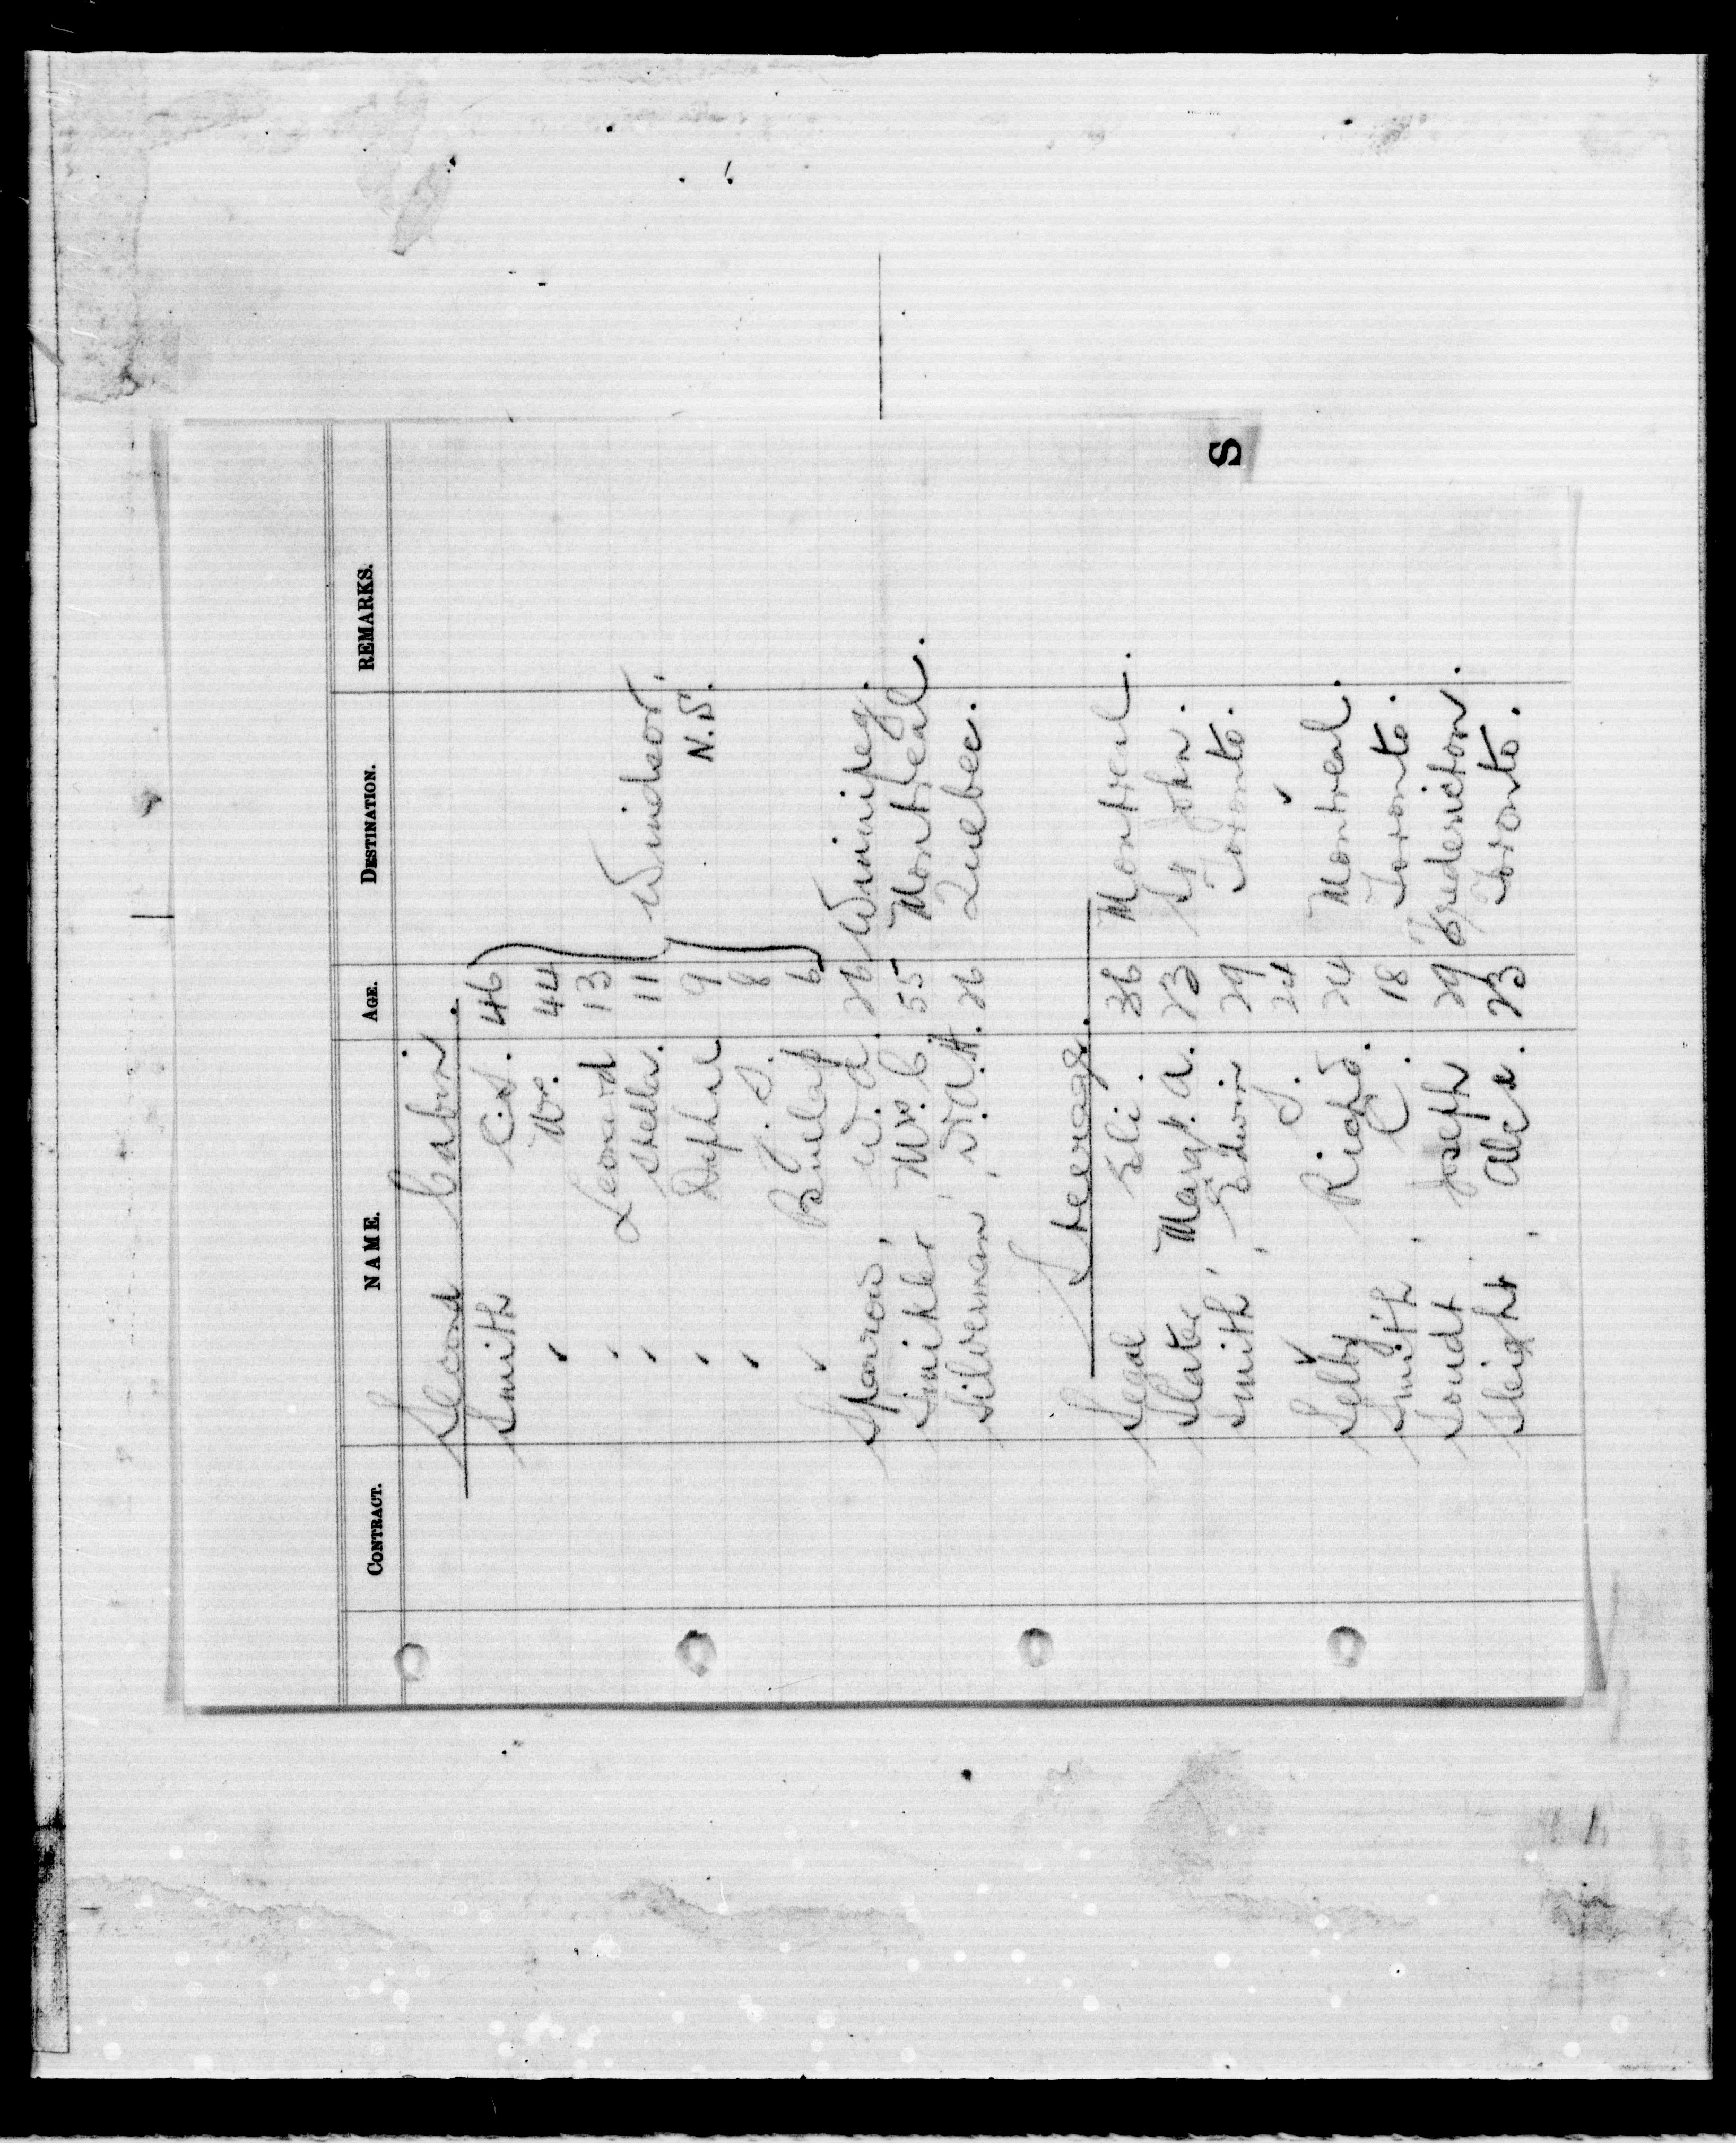 S
CONTRACT. NAME. AGE. DESTINATION. REMARKS.
Second Cabin.
Smith C.S. 46
" Mrs. 44
" Leonard 13
" Stella. 11 Windsor,
" Daphne 9 N.S.
" J. S. 8
" 6
Sparrow, W. A. 26 Winnipeg.
Mrs. C 55 Montreal.
Silverman, 26 Quebec.
Steerage.
Segal Eli. 36 Montreal.
Slater Margt. A. 23 St John.
Smith, Edwin 29 Toronto.
" J. 24 "
Selby Richd. 24 Montreal.
Smith, C. 18 Toronto.
Joseph 29 Fredericton.
Sleight, 23 Toronto.